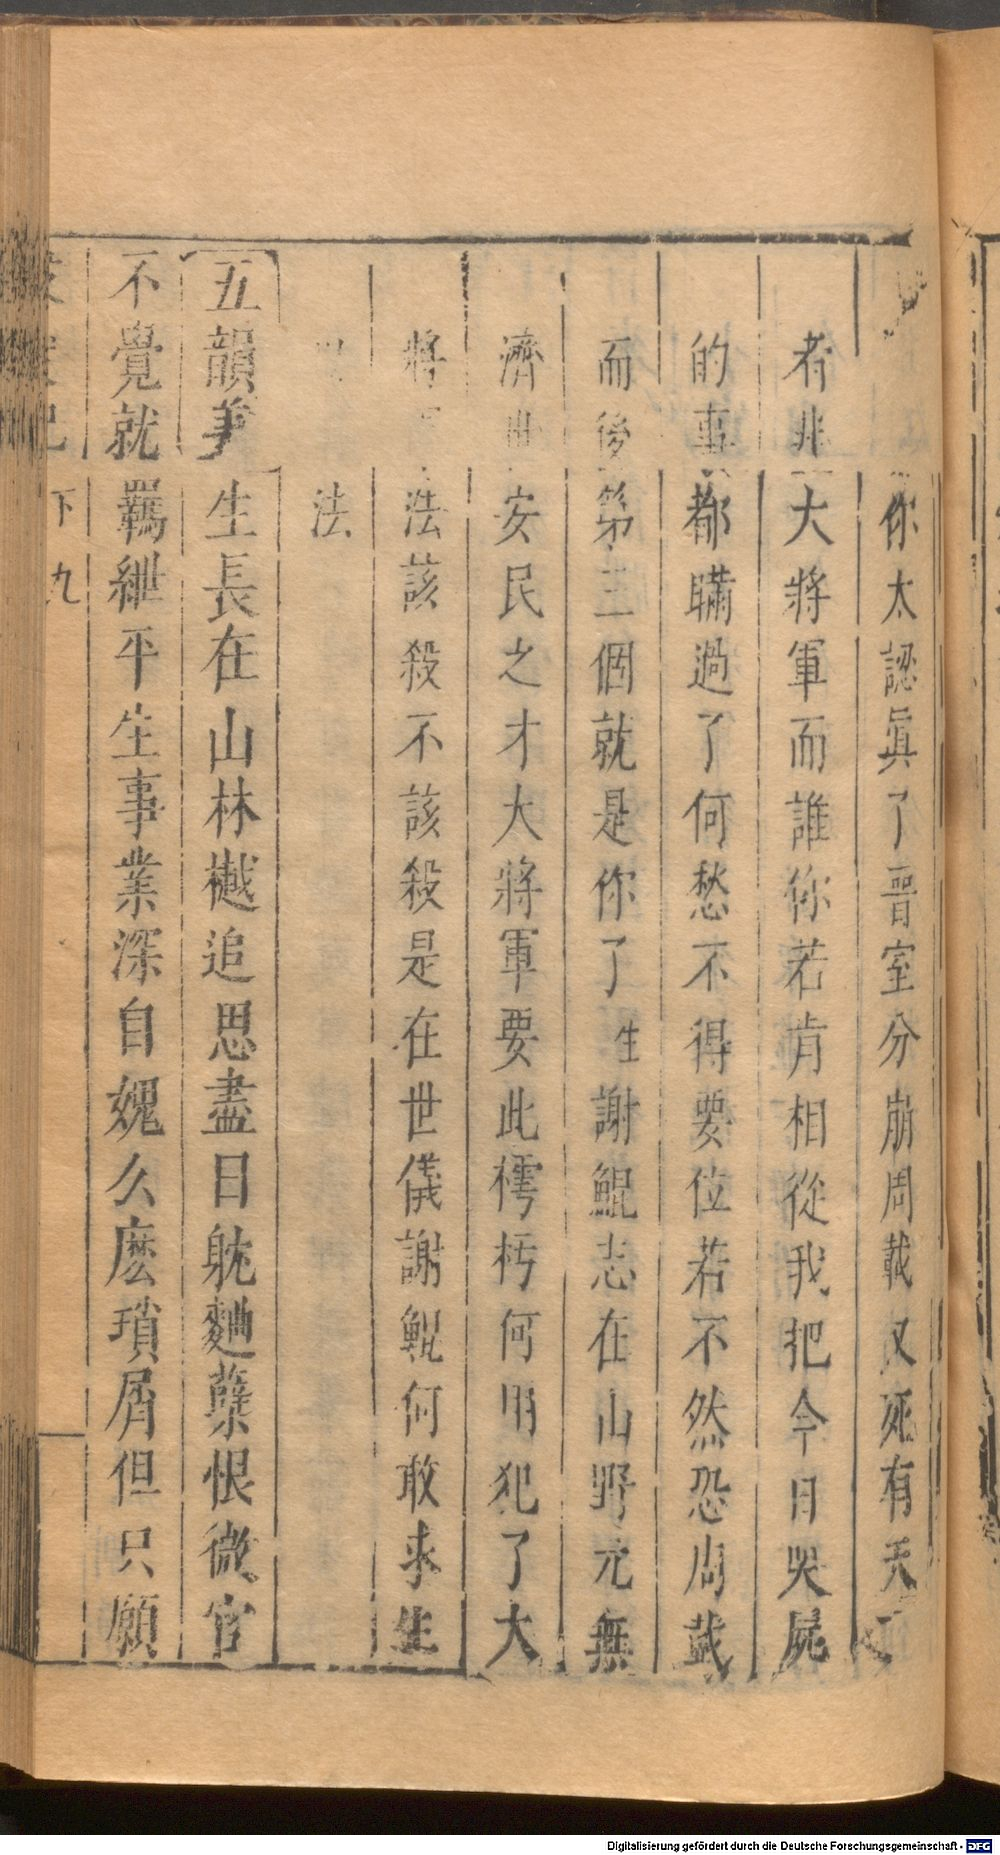 你太認眞了晉室分崩周戴又死有天下
者非大將軍而誰你若肯相從我把今日哭屍
的事都瞞過了何愁不得要位若不然恐周戴
而後第三個就是你了生謝鯤志在山野元無
濟世安民之才大將軍要此樗朽何用犯了大
將法該殺不該殺是在世儀謝鯤何敢求生
法
五韻美生長在山林樾追思盡日躭麯櫱恨微官
不覺就羈紲平生事業深自媿么麽瑣屑但只願
下 九
Digitalisierung gefördert durch die Deutsche Forschungsgemeinschaft - DFG